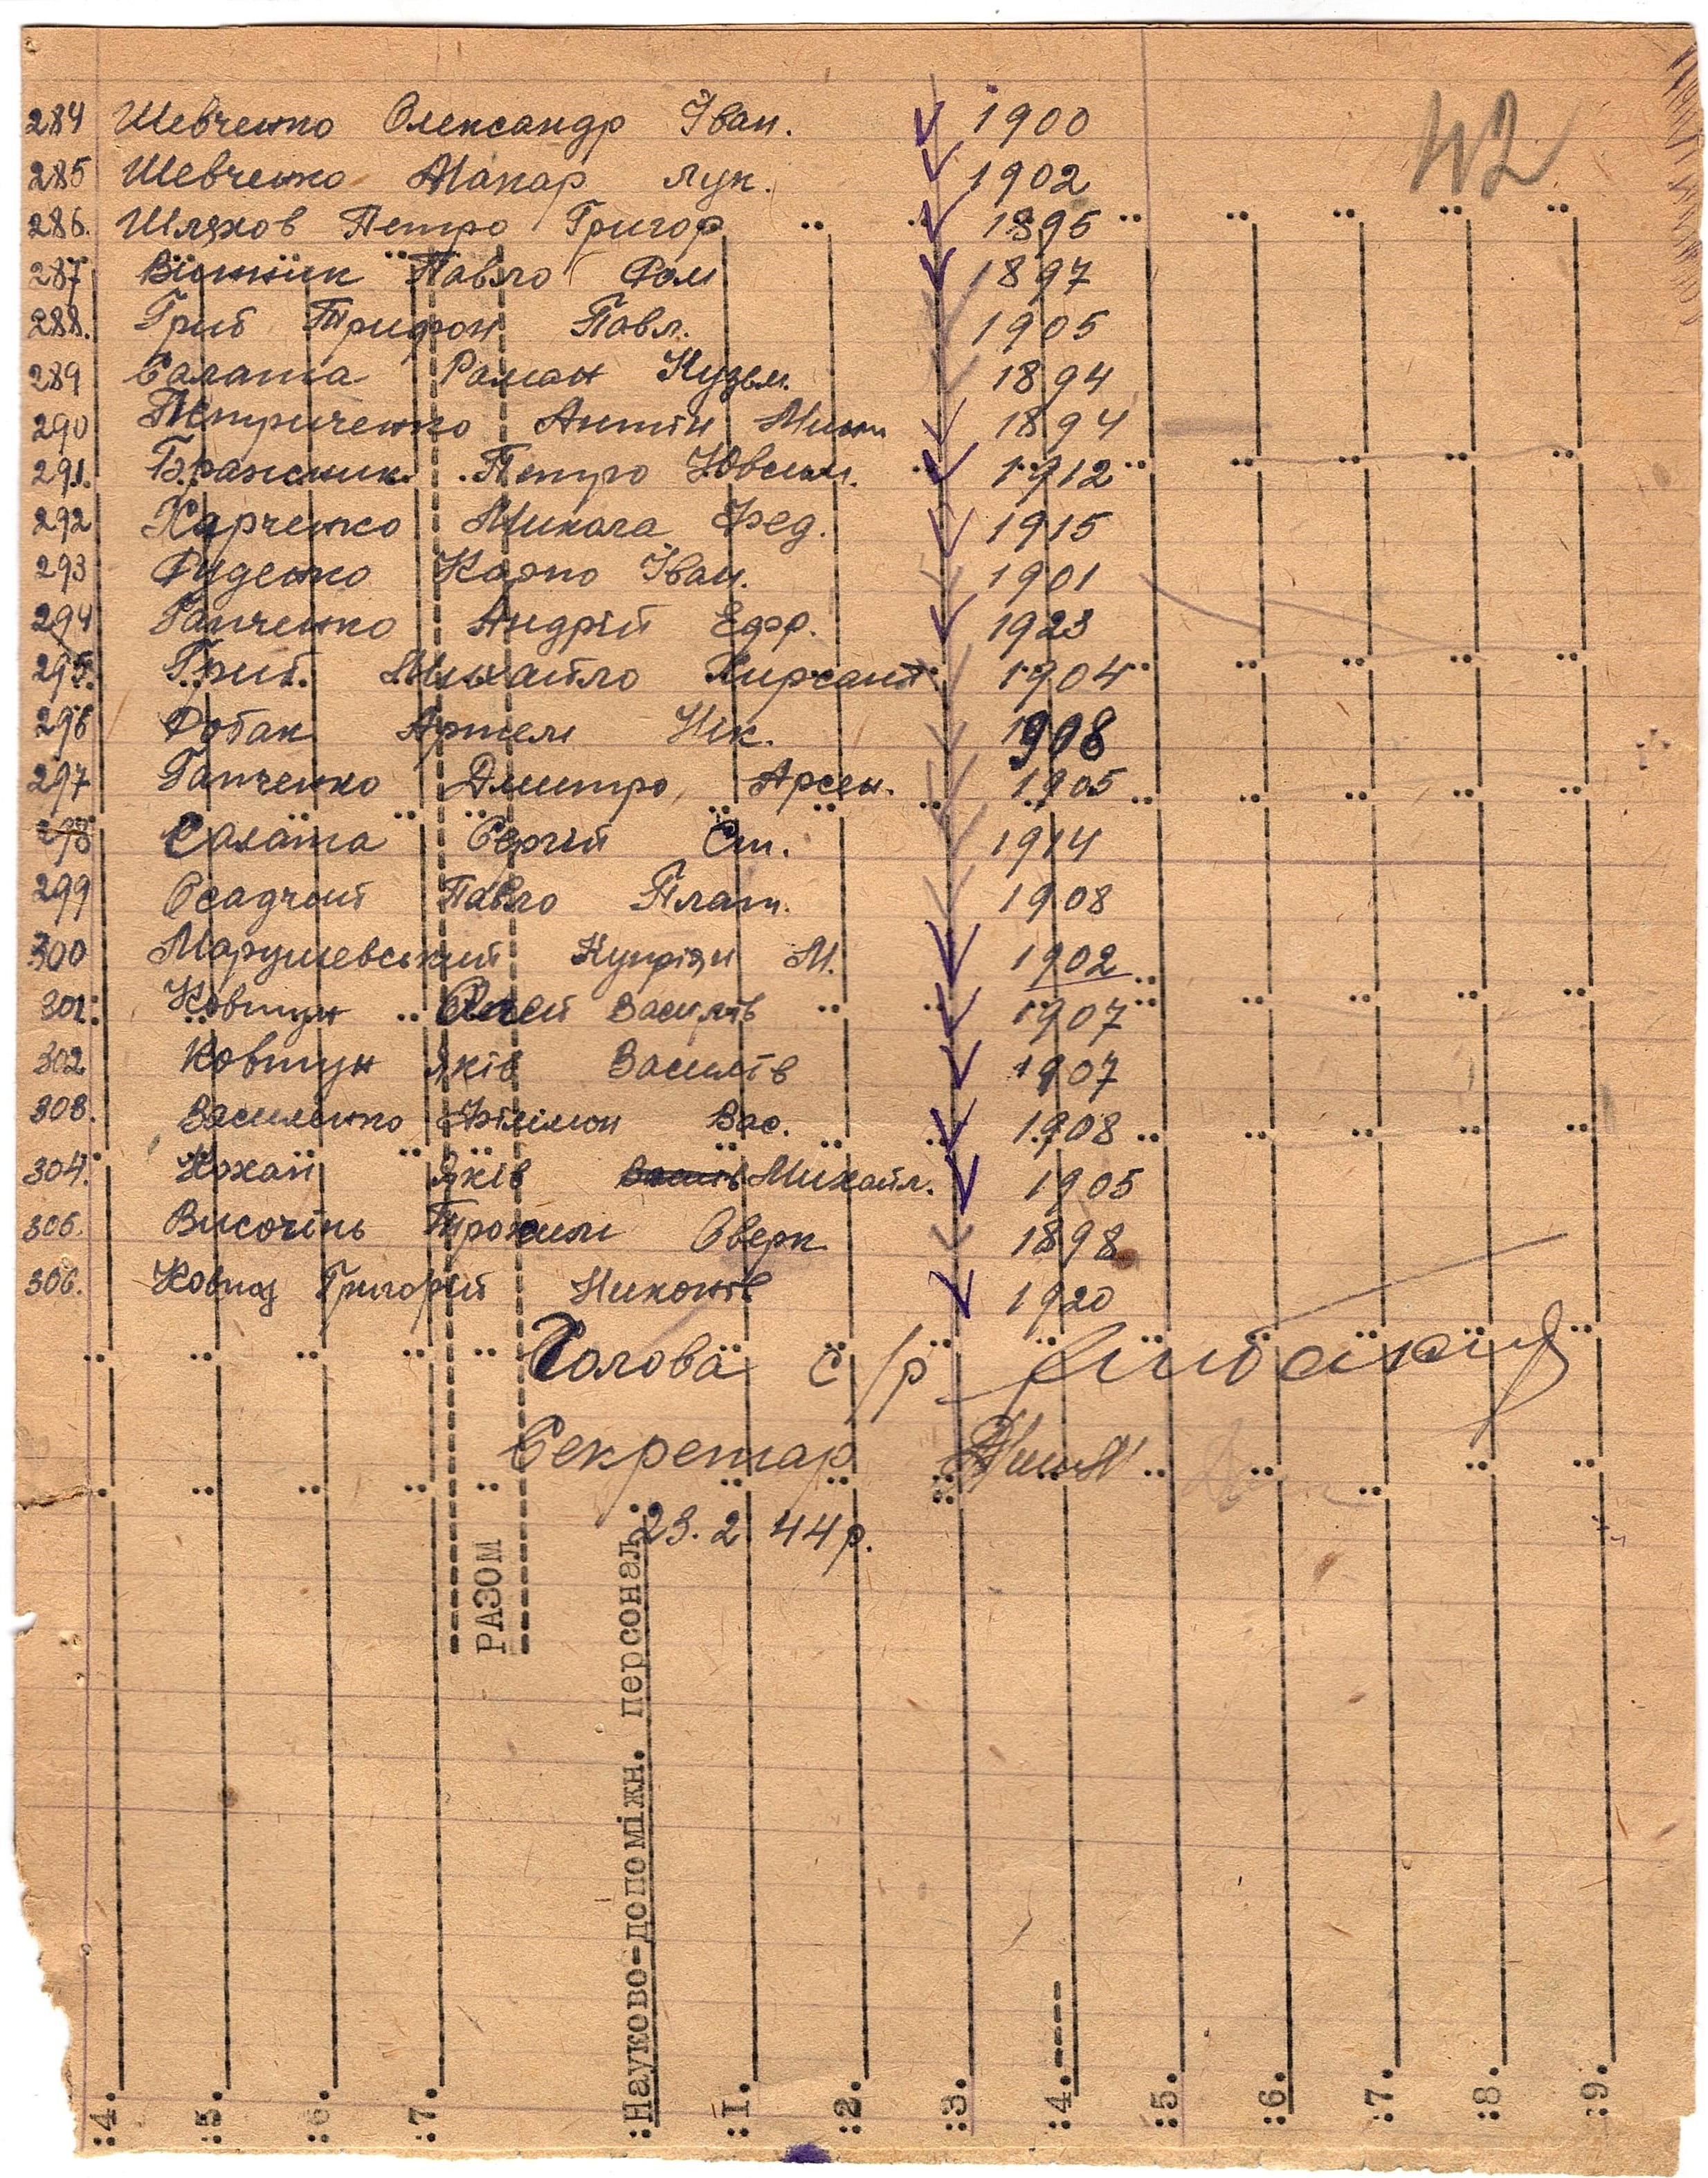 42
284 Шевченко Олександр Іван. 1900
285 Шевченко Макар Лук. 1902
286. Шляхов Петро Григор 1895
287 Вітник Павло Ром 1897
288. Гриб Трифон Павл. 1905
289 Салата Роман Кузьм. 1894
290 Петриченко Антін 1894
291. Бражник Петро Ювсим. 1912
292 Харченко Микола Фед. 1915
293 Руденко Карпо Іван. 1901
294 Гапченко Андрій Ефр. 1923
295. Гриб. Михайло Хирсант. 1904
296 Робак Артем Нік. 1908
297 Гапченко Дмитро Арсен. 1905
298 Салата Сергій Ст. 1914
299 Осадчий Павло Плат. 1908
300 Марушевський Купріян М. 1902
301. Ковтун Василів 1907
302 Ковтун Яків Василів 1907
303. Василенко Філімон Вас. 1908
304. Кохан Яків Михайл. 1905
305. Височінь Трохим Оверк 1898
306. Григорій Никонів 1920
Голова с/р
Секретар
23.2 44 р.
РАЗОМ
Науково-допоміжн. персонал:
:4. :5. :6. :7. :1. :2. :3. :4.---- :5. :6. :7. :8. :9.